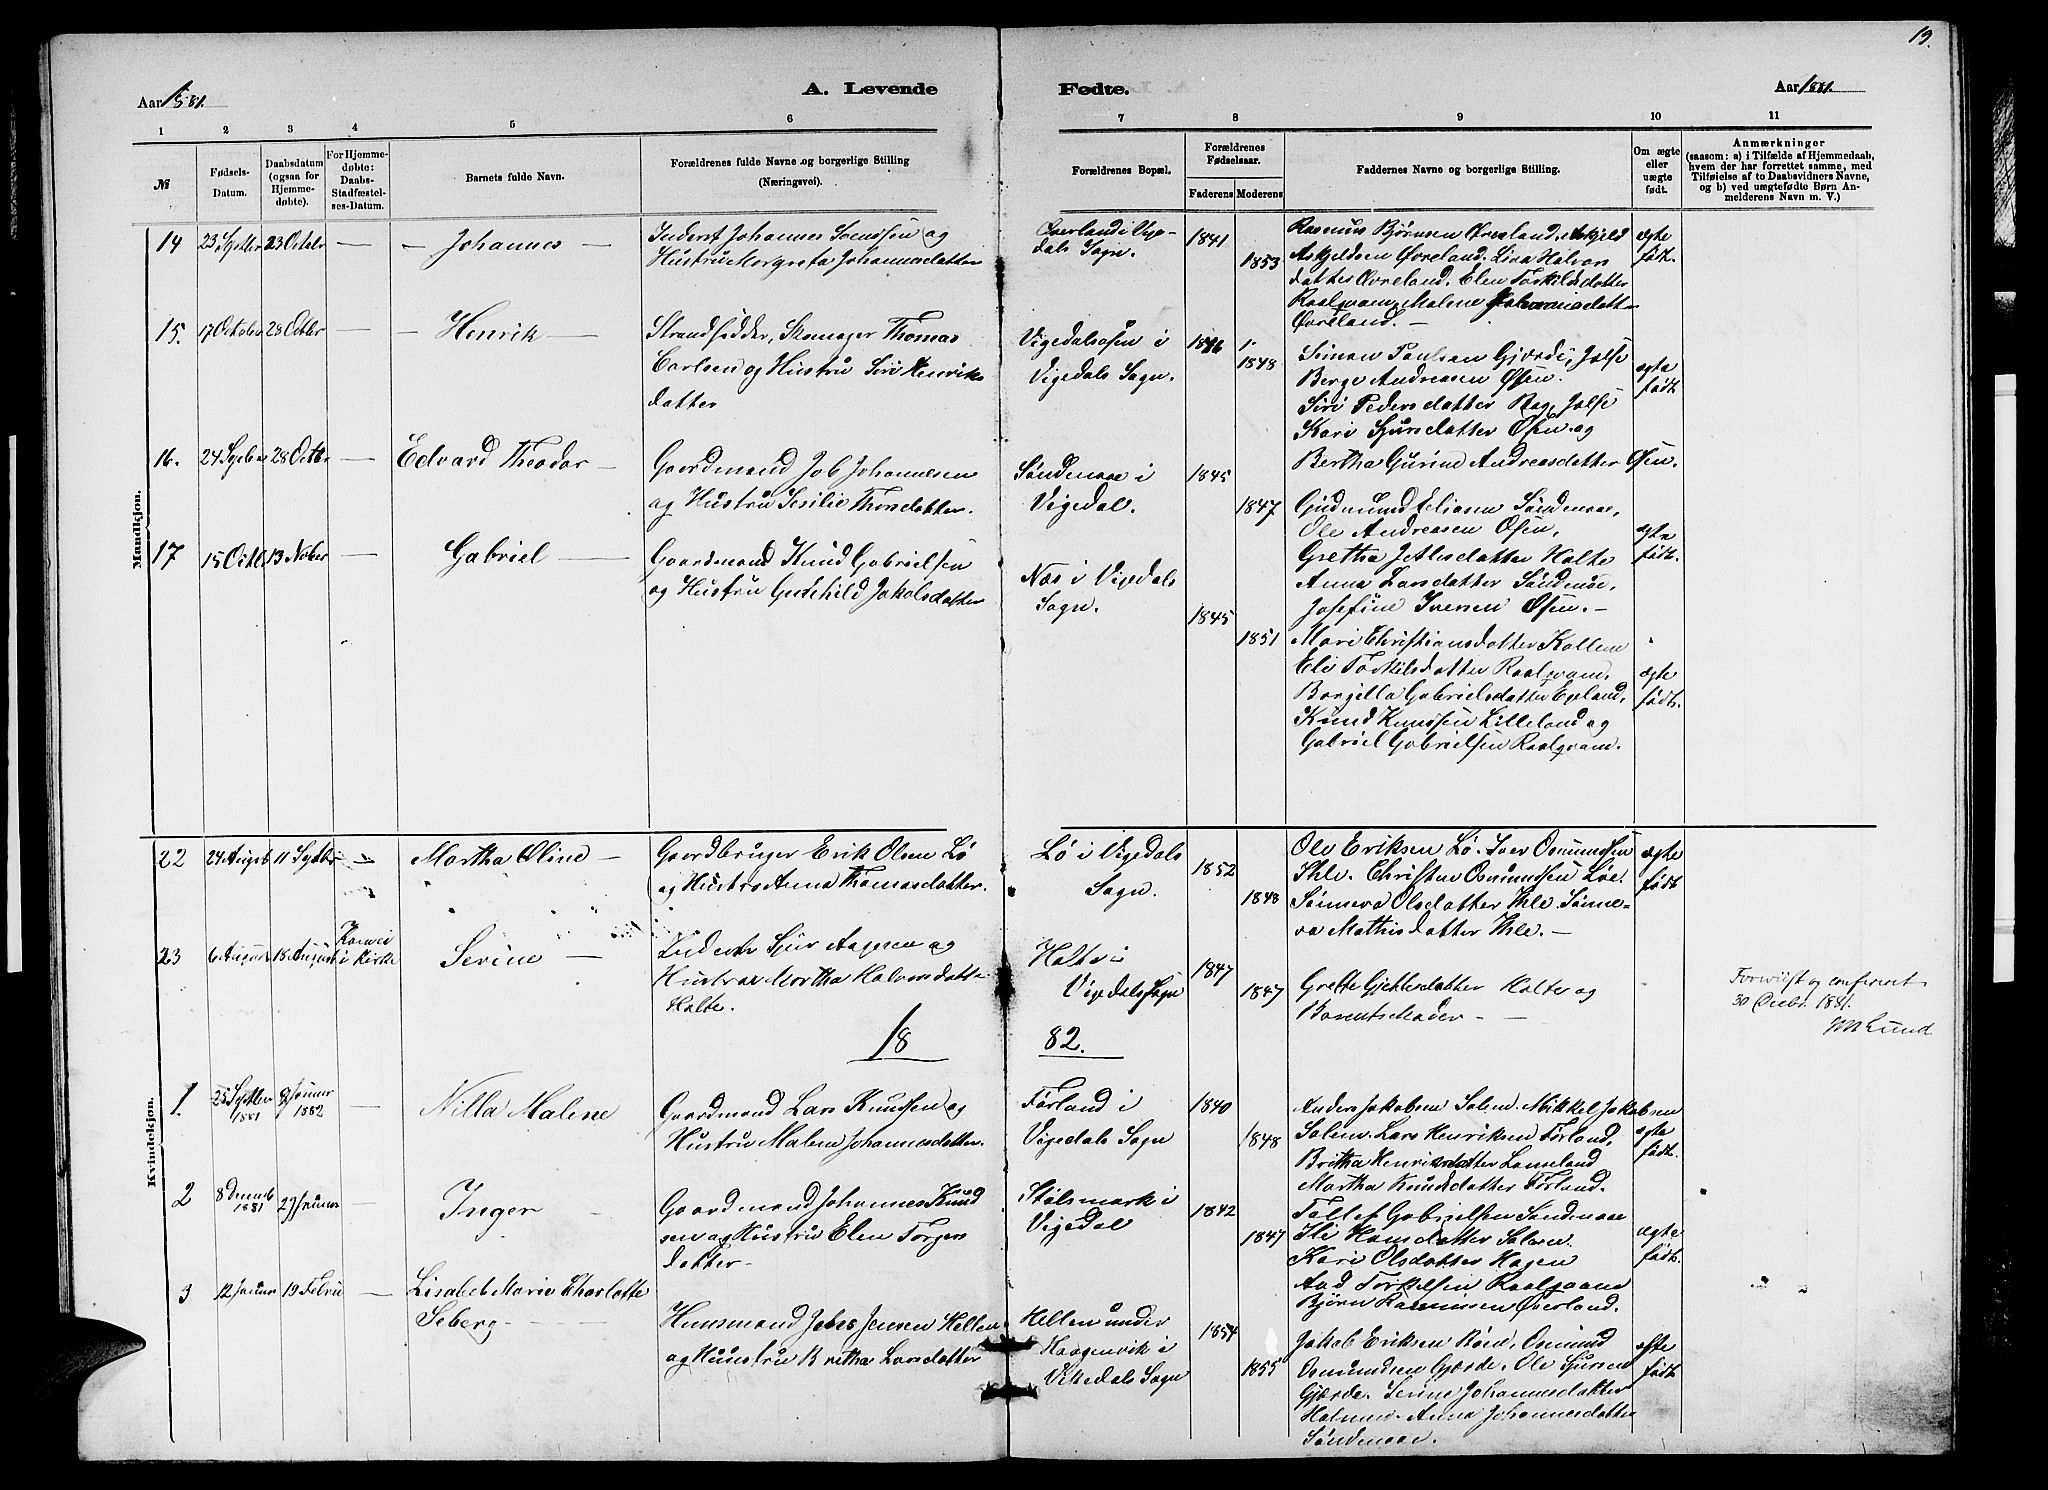 19.
Aar 1881.
A. Levende
Fødte.
Aar 1881.
1 2 3 4 5 6 7 8 9 10 11
№
Fødsels-
Datum.
Daabsdatum
(ogsaa for
Hjemme-
døbte).
For Hjemme-
døbte:
Daabs-
Stadfæstel-
ses-Datum.
Barnets fulde Navn.
Forældrenes fulde Navne og borgerlige Stilling
(Næringsvei).
Forældrenes Bopæl.
Forældrenes
Fødselsaar.
Faderens Moderens
Faddernes Navne og borgerlige Stilling.
Om ægte
eller
uægte
født.
Anmærkninger
(saasom: a) i Tilfælde af Hjemmedaab,
hvem der har forrettet samme, med
Tilføielse af to Daabsvidners Navne,
og b) ved uægtefødte Børn An-
melderens Navn m. V.)
Mandkjøn.
14 23 Septbr 23 Octbr — — Johannes —
Inderst Johannes Svenssen og
Hustru Margreta Johannesdatter
Øvreland i Vige-
dals Sogn.
1841
1853
Rasmus Bjørnsen Øvreland, Askjeld
Askjeldsen Øvreland. Lisa Halvors
datter Øvreland. Elen Torkildsdatter
Raalqvam. Malene
Øvreland. —
ægte
født.
15. 17 October 23 Octbr — — Henrik —
Strandsidder, Skomager Thomas
Carlsen og Hustru Siri Henriks
datter
Vigedalsøsen i
Vigedals Sogn.
1846
1848
Simon Paulsen Gjærde,
Berge Andreassen Øsen.
Siri Pedersdatter
Kari Sjursdatter Øsen og
Bertha Gurine Andreasdatter Øsen.
ægte
født
16. 24 Septbr 28 Octbr — Edvard Theodor —
Gaardmand Job Johannesen
og Hustru Sesilie Thorsdatter.
Søndenaae i
Vigedal.
1845
1847
Gudmund Eliasen Søndenaae,
Ole Andreasen Øsen,
Gretha Jetlesdatter Halte
Anna Larsdatter Søndenaae,
Josefine Iversen Øsen. —
ægte
født.
17 15 Octbr 13 Nober — Gabriel —
Gaardmand Knud Gabrielsen
og Hustru Gudehild Jakobsdatter
Næs i Vigedals
Sogn.
1845
1851
Mari Christiansdatter Kallem
Eli Torkilsdatter Raalqvam.
Borgilla Gabrielsdatter Egeland,
Knud Knudsen Lilleland og
Gabriel Gabrielsen Raalqvam.
ægte
født.
Kvindekjøn.
22 24 August 11 Septbr — Martha Oline —
Gaardbruger Erik Olsen Lø
og Hustru Anna Thomasdatter.
Lø i Vigedals
Sogn.
1852
1848
Ole Eriksen Lø. Iver Osmundsen
Ihle. Christen Osmundsen Løe.
Sønneva Olsdatter Ihle. Sønne-
va Mathisdatter Ihle. —
ægte
født.
23 6 August 18 August i Kirke Serine —
Inderst Sjur Aagesen og
Hustrue Martha Halvorsdatter
Halte.
Halte i
Vigedals Sogn
1847
1847
Grethe Gjetlesdatter Halte og
Barnets Moder —
30 Decbr. 1881.
Lund
18 82.
1. 25 Septbr
1881
9 Januar
1882
— Nilla Malene
Gaardmand Lars Knudsen og
Hustru Malene Johannesdatter.
Førland i
Vigedals Sogn
1840
1848
Anders Jakobsen Salem. Mikkel Jakobsen
Salem. Lars Henriksen Førland,
Britha Henriksdatter Lømeland
Martha Knudsdatter Førland.
ægte
født.
2 8 Decemb
1881
29 Januar — Inger —
Gaardmand Johannes Knud
sen og Hustru Elen Torgers
datter —
Stølsmark i
Vigedal
1842
1847
Tollef Gabrielsen Søndenaae
Ili Hansdatter Salem.
Kari Olsdatter Hagen
And Torkelsen Raalqvam
Bjørn Rasmussen Øvreland.
ægte
født.
3 12 Januar 19 Febru — Lisabet Marie Charlotte
Seberg —
Huusmand Johs Jensen Hellen
og Huustru Britha Larsdatter
Hellen under
Haapenvik i
Vikedals Sogn
1854
1855
Jakob Eriksen Røne, Osmund
Osmundsen Gjærde. Ole Sjursen
Gjærde. Serine Johannesdatter
Halmer. Anna Johannesdatter
Søndenaae.
ægte
født.